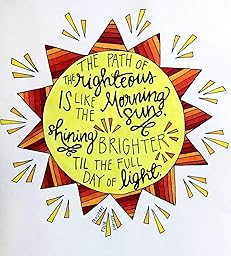 THE PATH OF
THE righteous
IS LIKE THE Morning
sun,
shining BRIGHTER
'TIL THE FULL
DAY OF light.